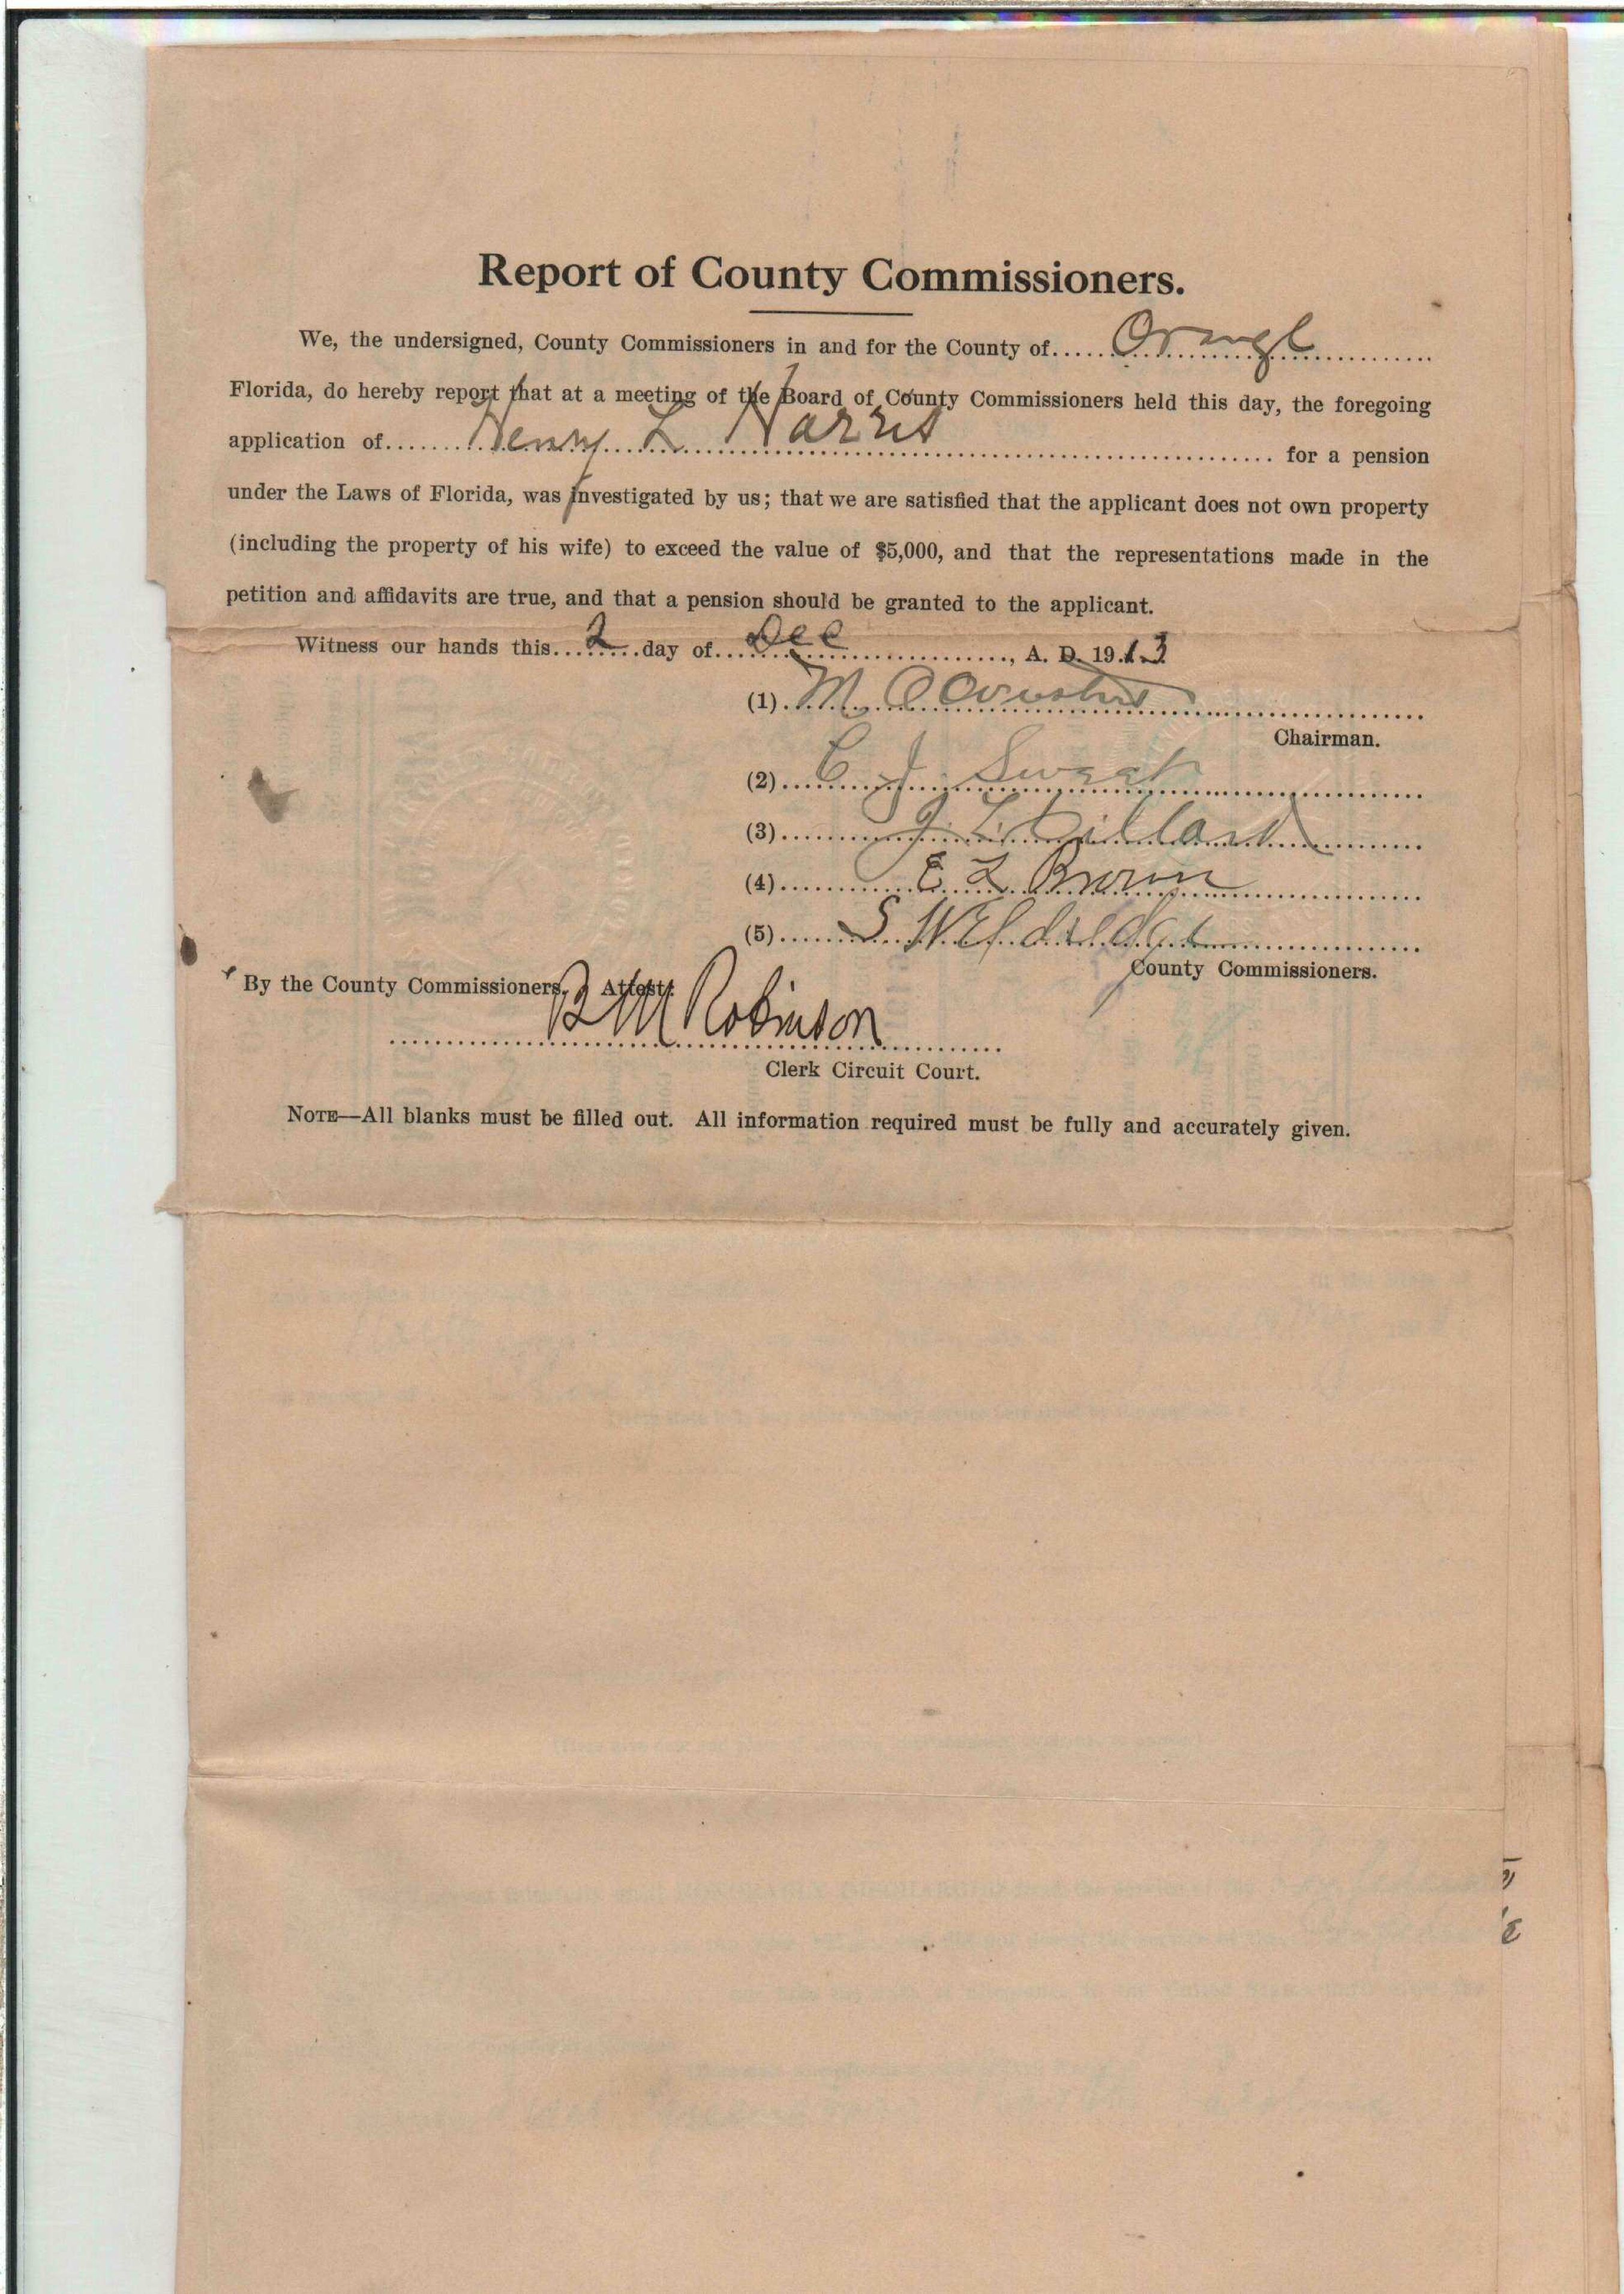 Report of County Commissioners.
We, the undersigned, County Commissioners in and for the County of Orange
Florida, do hereby report that at a meeting of the Board of County Commissioners held this day, the foregoing
application of Henry L Harris for a pension
under the Laws of Florida, was investigated by us; that we are satisfied that the applicant does not own property
(including the property of his wife) to exceed the value of $5,000, and that the representations made in the
petition and affidavits are true, and that a pension should be granted to the applicant.
Witness our hands this 2 day of Dec, A. D. 1913
(1) M O Overstreet
Chairman.
(2) C J Sweet
(3) J L Dillard
(4) E L Brown
(5) S W Eldridge
County Commissioners.
By the County Commissioners, Attest:
B M Robinson
Clerk Circuit Court.
NOTE—All blanks must be filled out. All information required must be fully and accurately given.